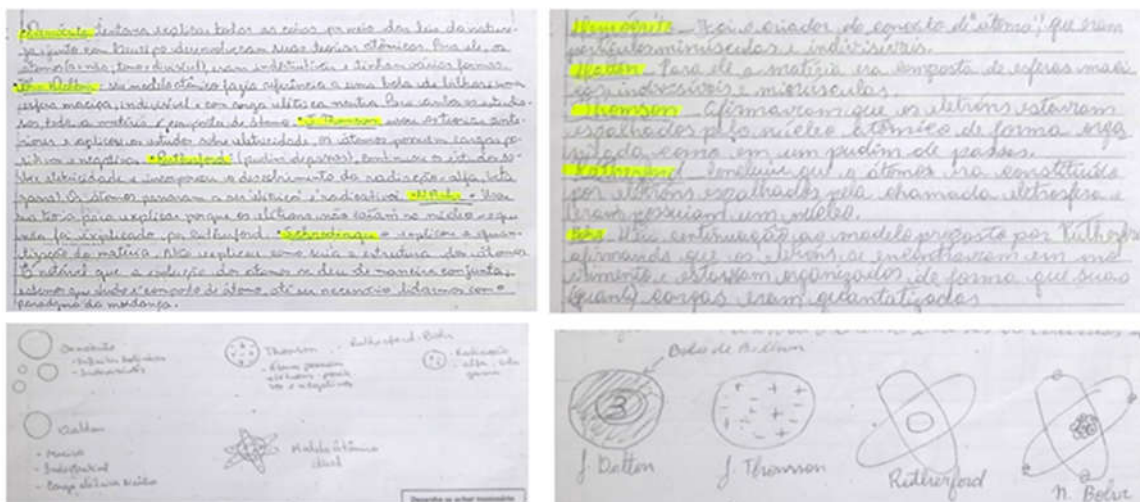 Demócrito tentava explicar todas as coisas por meio das leis da nature-
za junto com Leucipo desenvolveram suas teorias atômicas. Para ele, os
átomos (a=não, tomo=divisível) eram indestrutíveis e tinham várias formas.
John Dalton: seu modelo atômico fazia referência a uma bola de bilhar, uma
esfera maciça, indivisível e com carga elétrica neutra. Para ambos os estudio-
sos, toda a matéria é composta de átomo. J. Thomson usou as teorias ante-
riores e aplicou os estudos sobre eletricidade, os átomos possuem cargas po-
sitivas e negativas. Rutherford (pudim de passas), continuou os estudos so-
bre eletricidade e incorporou o descobrimento da radiação: alfa, beta
gama. Os átomos passaram a ser elétricos e radioativos. N. Bohr -
sua teoria para explicar porque os elétrons não caíam no núcleo o que
não foi explicado por Rutherford. Schrodinger explicou a quan-
tização da matéria. explicar como seria a estrutura dos átomos
É notável que a evolução dos átomos se deu de maneira conjunta,
que tudo é composto de átomo, até ser necessário lidarmos com o
paradigma da mudança.
Demócrito - Foi o criador do conceito de "átomo", que eram
partículas minúsculas e indivisíveis.
Dalton - Para ele a matéria era composta de esferas maci
ças indivisíveis e minúsculas.
Thomson - Afirmavam que os elétrons estavam
espalhados pelo núcleo atômico de forma orga
nizada como em um pudim de passas.
Rutherford - Concluiu que o átomos era constituído
por elétrons espalhados pela chamada eletrosfera e
possuiam um núcleo.
Bohr - Deu continuação ao modelo proposto por Rutherford
afirmando que os se encontravam em mo
vimento e estavam organizados de forma que suas
(quant) cargas eram quantatizadas
Demócrito
- Indivisíveis
Thomson
- Átomos possuem
elétrons - positi
vos e negativos
Rutherford-Bohr
- Radiação
- alfa, beta
gama
Dalton
- Maciça
- Indestrutível
- Carga elétrica Neutra
Modelo atômico
atual
Bola de Bilhar
3
J. Dalton
J. Thomson
Rutherford
N. Bohr